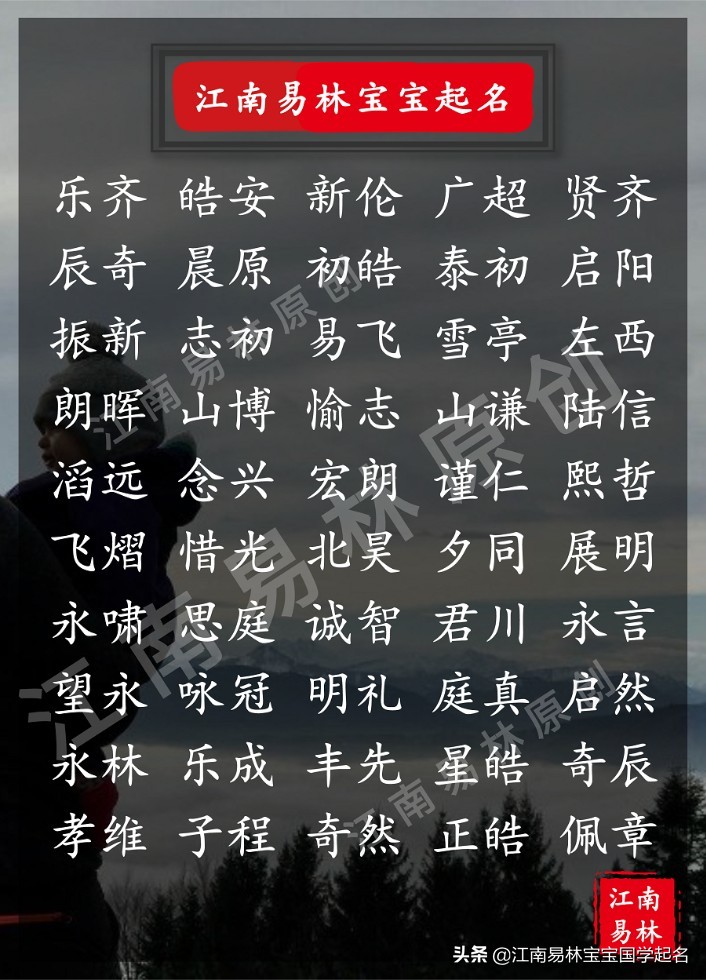 江南易林宝宝起名
乐齐 皓安 新伦 广超 贤齐
辰奇 晨原 初皓 泰初 启阳
振新 志初 易飞 雪亭 左西
朗晖 山博 愉志 山谦 陆信
滔远 念兴 宏朗 谨仁 熙哲
飞熠 惜光 北昊 夕同 展明
永啸 思庭 诚智 君川 永言
望永 咏冠 明礼 庭真 启然
永林 乐成 丰先 星皓 奇辰
孝维 子程 奇然 正皓 佩章
江南易林原创
江南易林原创
江南易林原创
江南
易林
头条 @江南易林宝宝国学起名